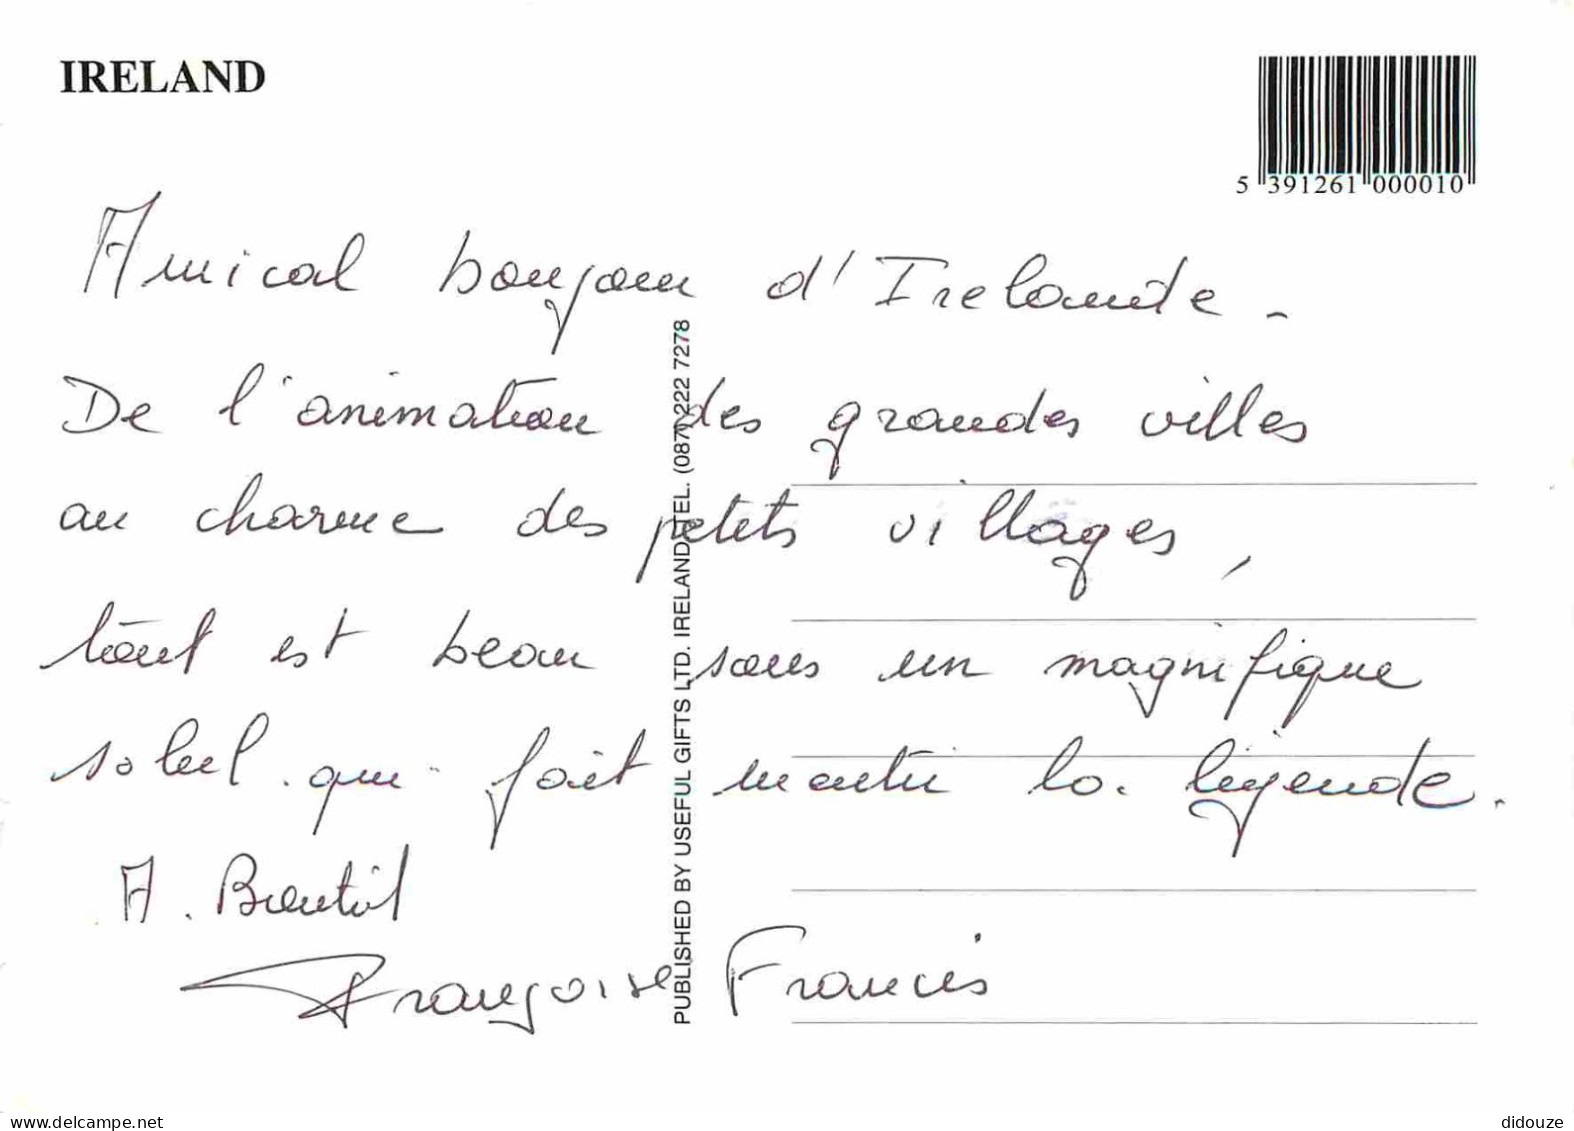 IRELAND
5 391261 000010
Amical bonjour d'Irelande.
De l'animation des grandes villes
au charme des petits villages,
tout est beau sous un magnifique
soleil qui fait mentir la légende.
A. Bientôt
Françoise Francis
PUBLISHED BY USEFUL GIFTS LTD. IRELAND TEL. (087) 222 7278
delcampe.net
didouze